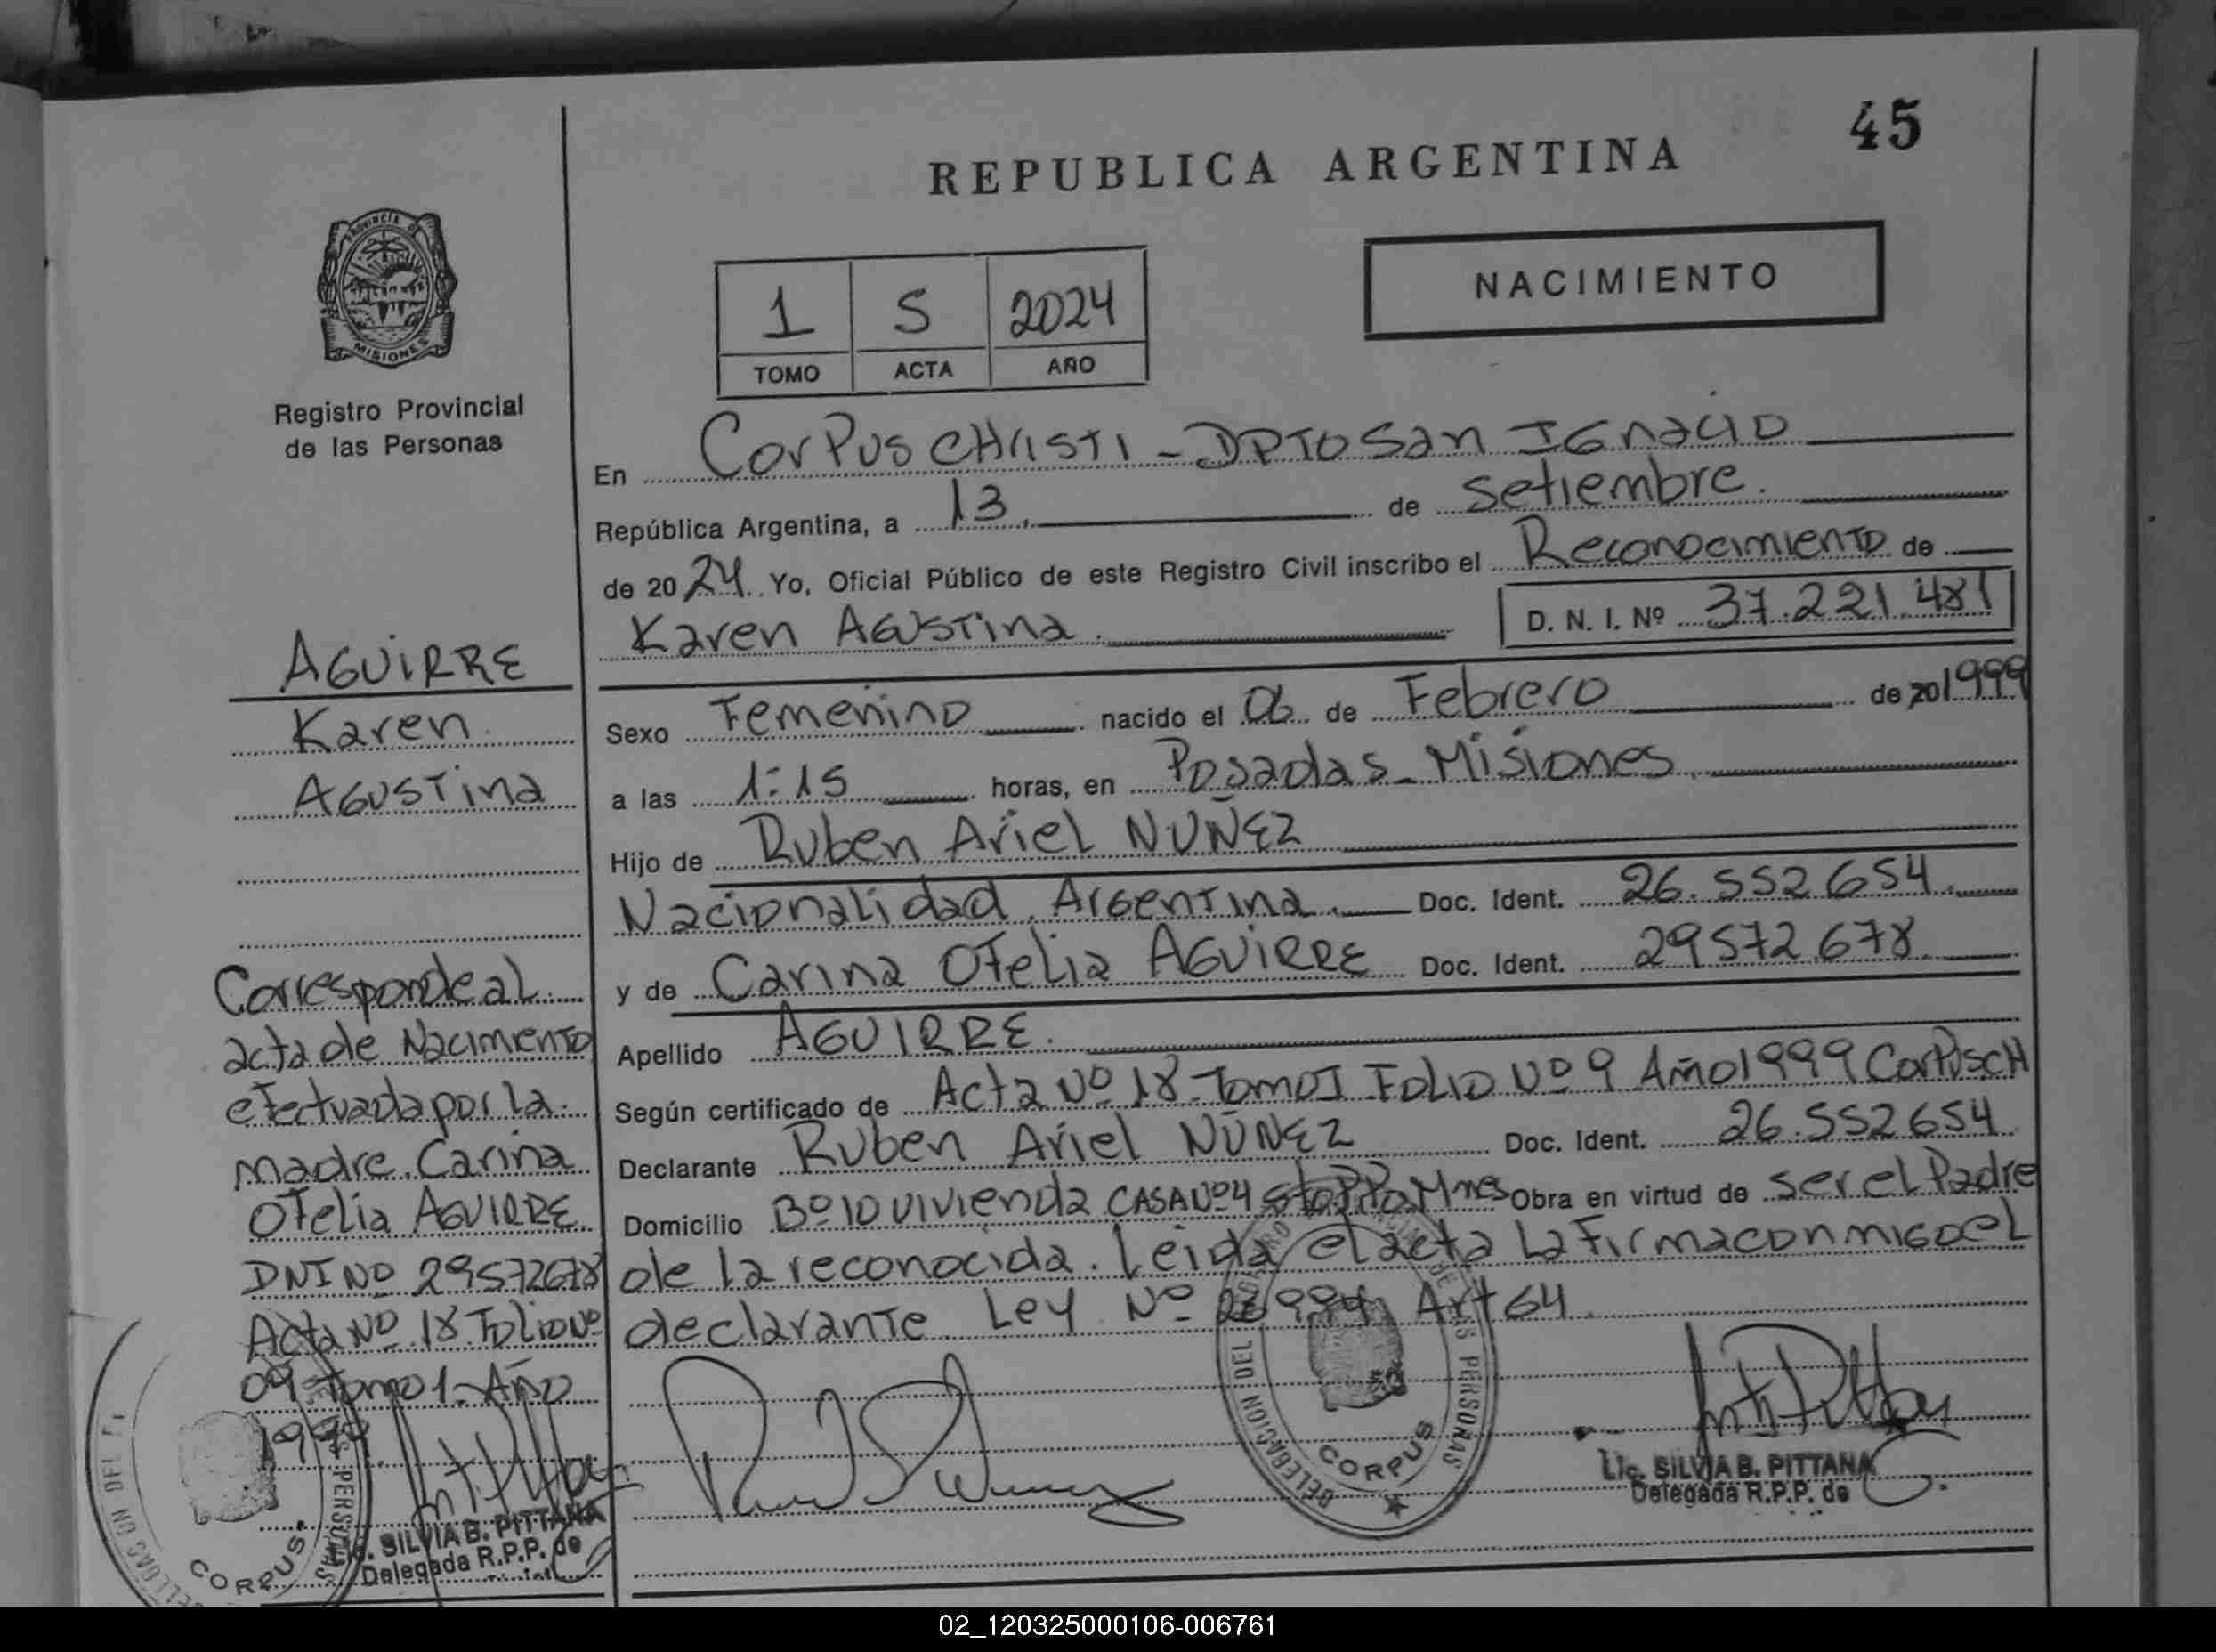 45
REPUBLICA ARGENTINA
NACIMIENTO
PROVINCIA DE
MISIONES
Registro Provincial
de las Personas
1 5 2024
TOMO ACTA AÑO
En Corpus CHristi - DPTO San IGnacio
República Argentina, a 13 de Setiembre.
de 2024. Yo, Oficial Público de este Registro Civil inscribo el Reconocimiento de
Karen AGustina. D. N. I. Nº 37.221.481
Sexo Femenino nacido el 06 de Febrero de 201999
a las 1:15 horas, en Posadas - Misiones
Hijo de Ruben Ariel NUÑEZ
Nacionalidad Argentina. Doc. Ident. 26.552654
y de Carina Ofelia AGUIRRE Doc. Ident. 29572.678
Apellido AGUIRRE.
Según certificado de Acta Nº 18-Tomo I Folio Nº 9 Año 1999 CorpusCH
Declarante Ruben Ariel NUÑEZ Doc. Ident. 26.552654
Domicilio Bº 10 vivienda CASA Nº4 Sto Pipo Mnes Obra en virtud de ser el Padre
de la reconocida. Leida el acta la firma conmigo el
declarante Ley Nº 26994 Art 64
AGUIRRE
Karen
AGUSTina
Corresponde al
acta de Nacimiento
efectuada por la
madre. Carina
Ofelia AGUIRRE
DNI Nº 29572678
Acta Nº 18 Folio Nº
09-Tomo 1-Año
1999.
DELEGACION DEL
DE LAS PERSONAS
CORPUS
Lic. SILVIA B. PITTANA
Delegada R.P.P. de
DELEGACION DEL
PERSONAS
CORPUS
Lic. SILVIA B. PITTANA
Delegada R.P.P. de
02_120325000106-006761